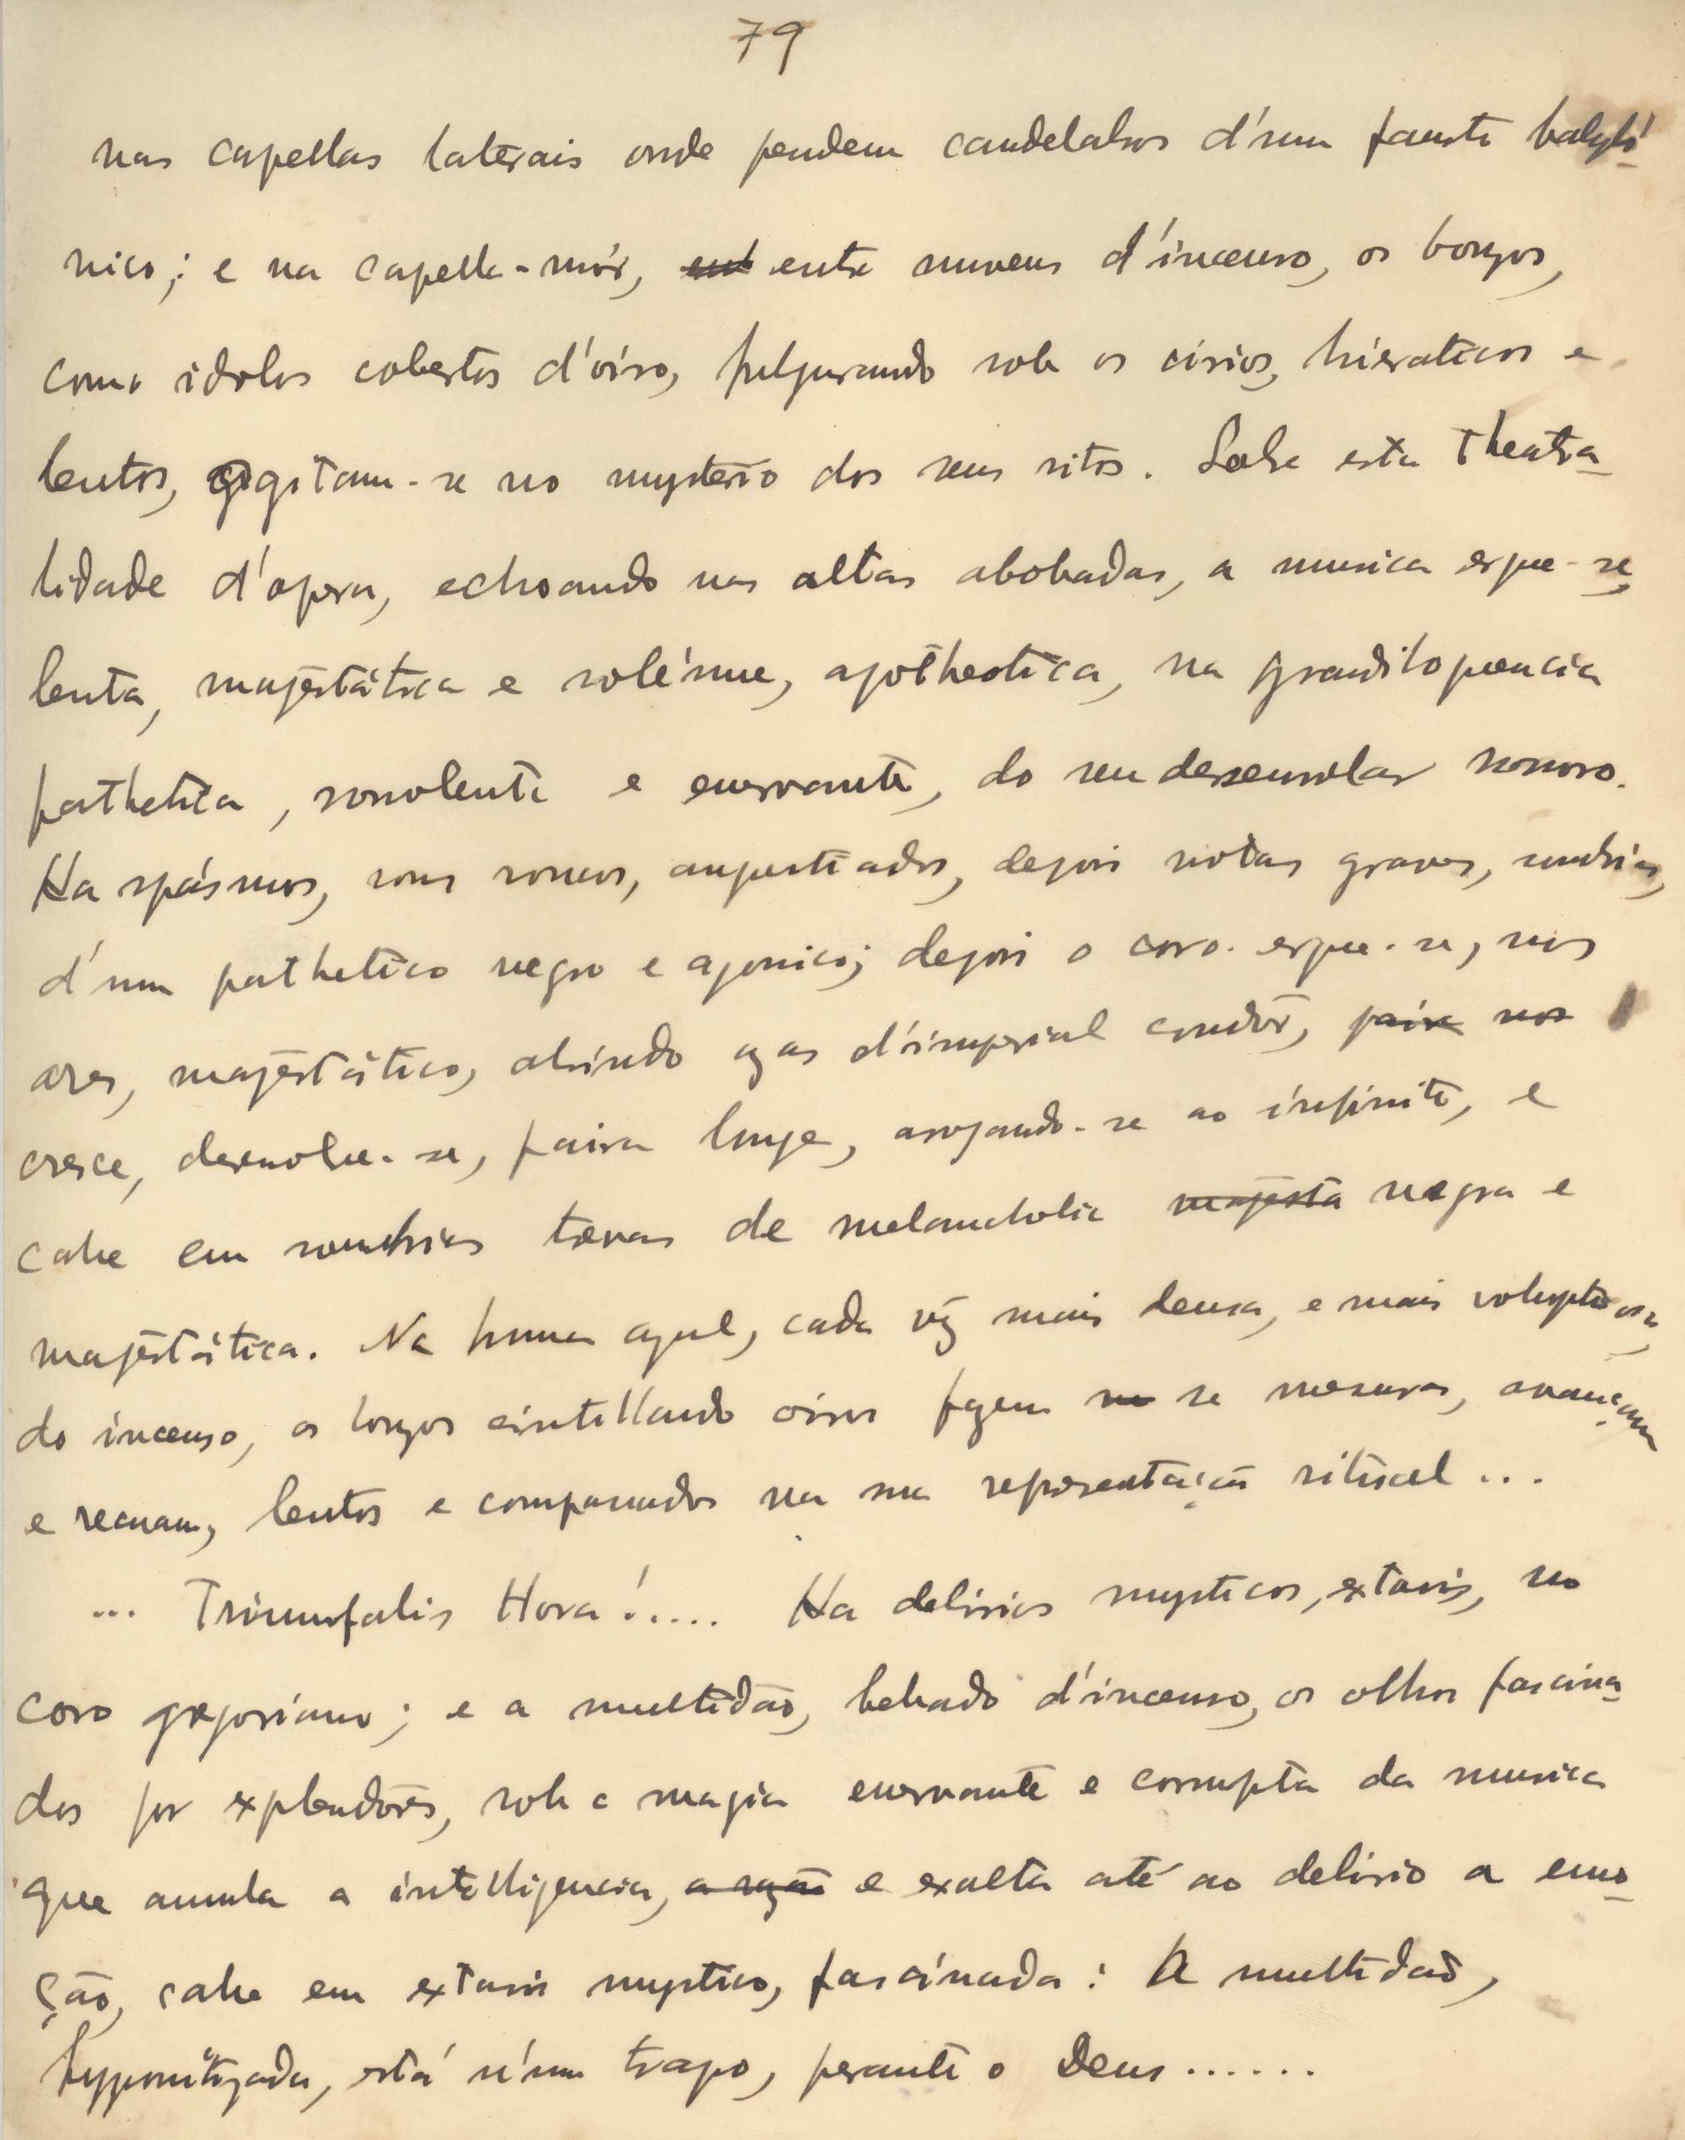 79
nas capellas laterais onde pendem candelabros d'um fausto babyló-
nico; e na capella-mór, ent entre nuvens d'incenso, os bonzos,
como idolos cobertos d'óiro, fulgurando sob os cirios, hieraticos e
lentos, agitam-se no mysterio dos seus ritos. Sobre esta theatra-
lidade d'opera, echoando nas altas abobadas, a musica ergue-se,
lenta, majestática e soléne, apotheotica, na grandiloquencia
pathetica, sonolenta e enervante, do seu desenrolar sonoro.
Ha spásmos, sons roucos, angustiados, depois notas graves, sombrias,
d'um pathetico negro e agonico; depois o coro ergue-se, nos
ares, majestático, abrindo azas d'imperial condôr, paira nos
cresce, desenvolve-se, paira longe, arrojando-se ao infinito, e
cahe em sombrias trevas de melancholia majesta negra e
majestática. Na bruma azul, cada vêz mais densa, e mais voluptuosa,
do incenso, os bonzos cintillando oiros fazem se mesuras, avançam
e recuam, lentos e compassados na sua representação ritual...
... Triumfalis Hora!..... Ha delirios mysticos, extasis, no
coro gregoriano; e a multidão, bebado d'incenso, os olhos fascina-
dos por explendôres, sob a magia enervante e corrupta da musica
que annula a intelligencia, a razão e exalta até ao delirio a emo-
ção, cahe em extasis mystico, fascinada: A multidão,
hypnotizada, está n'um trapo, perante o Deus......